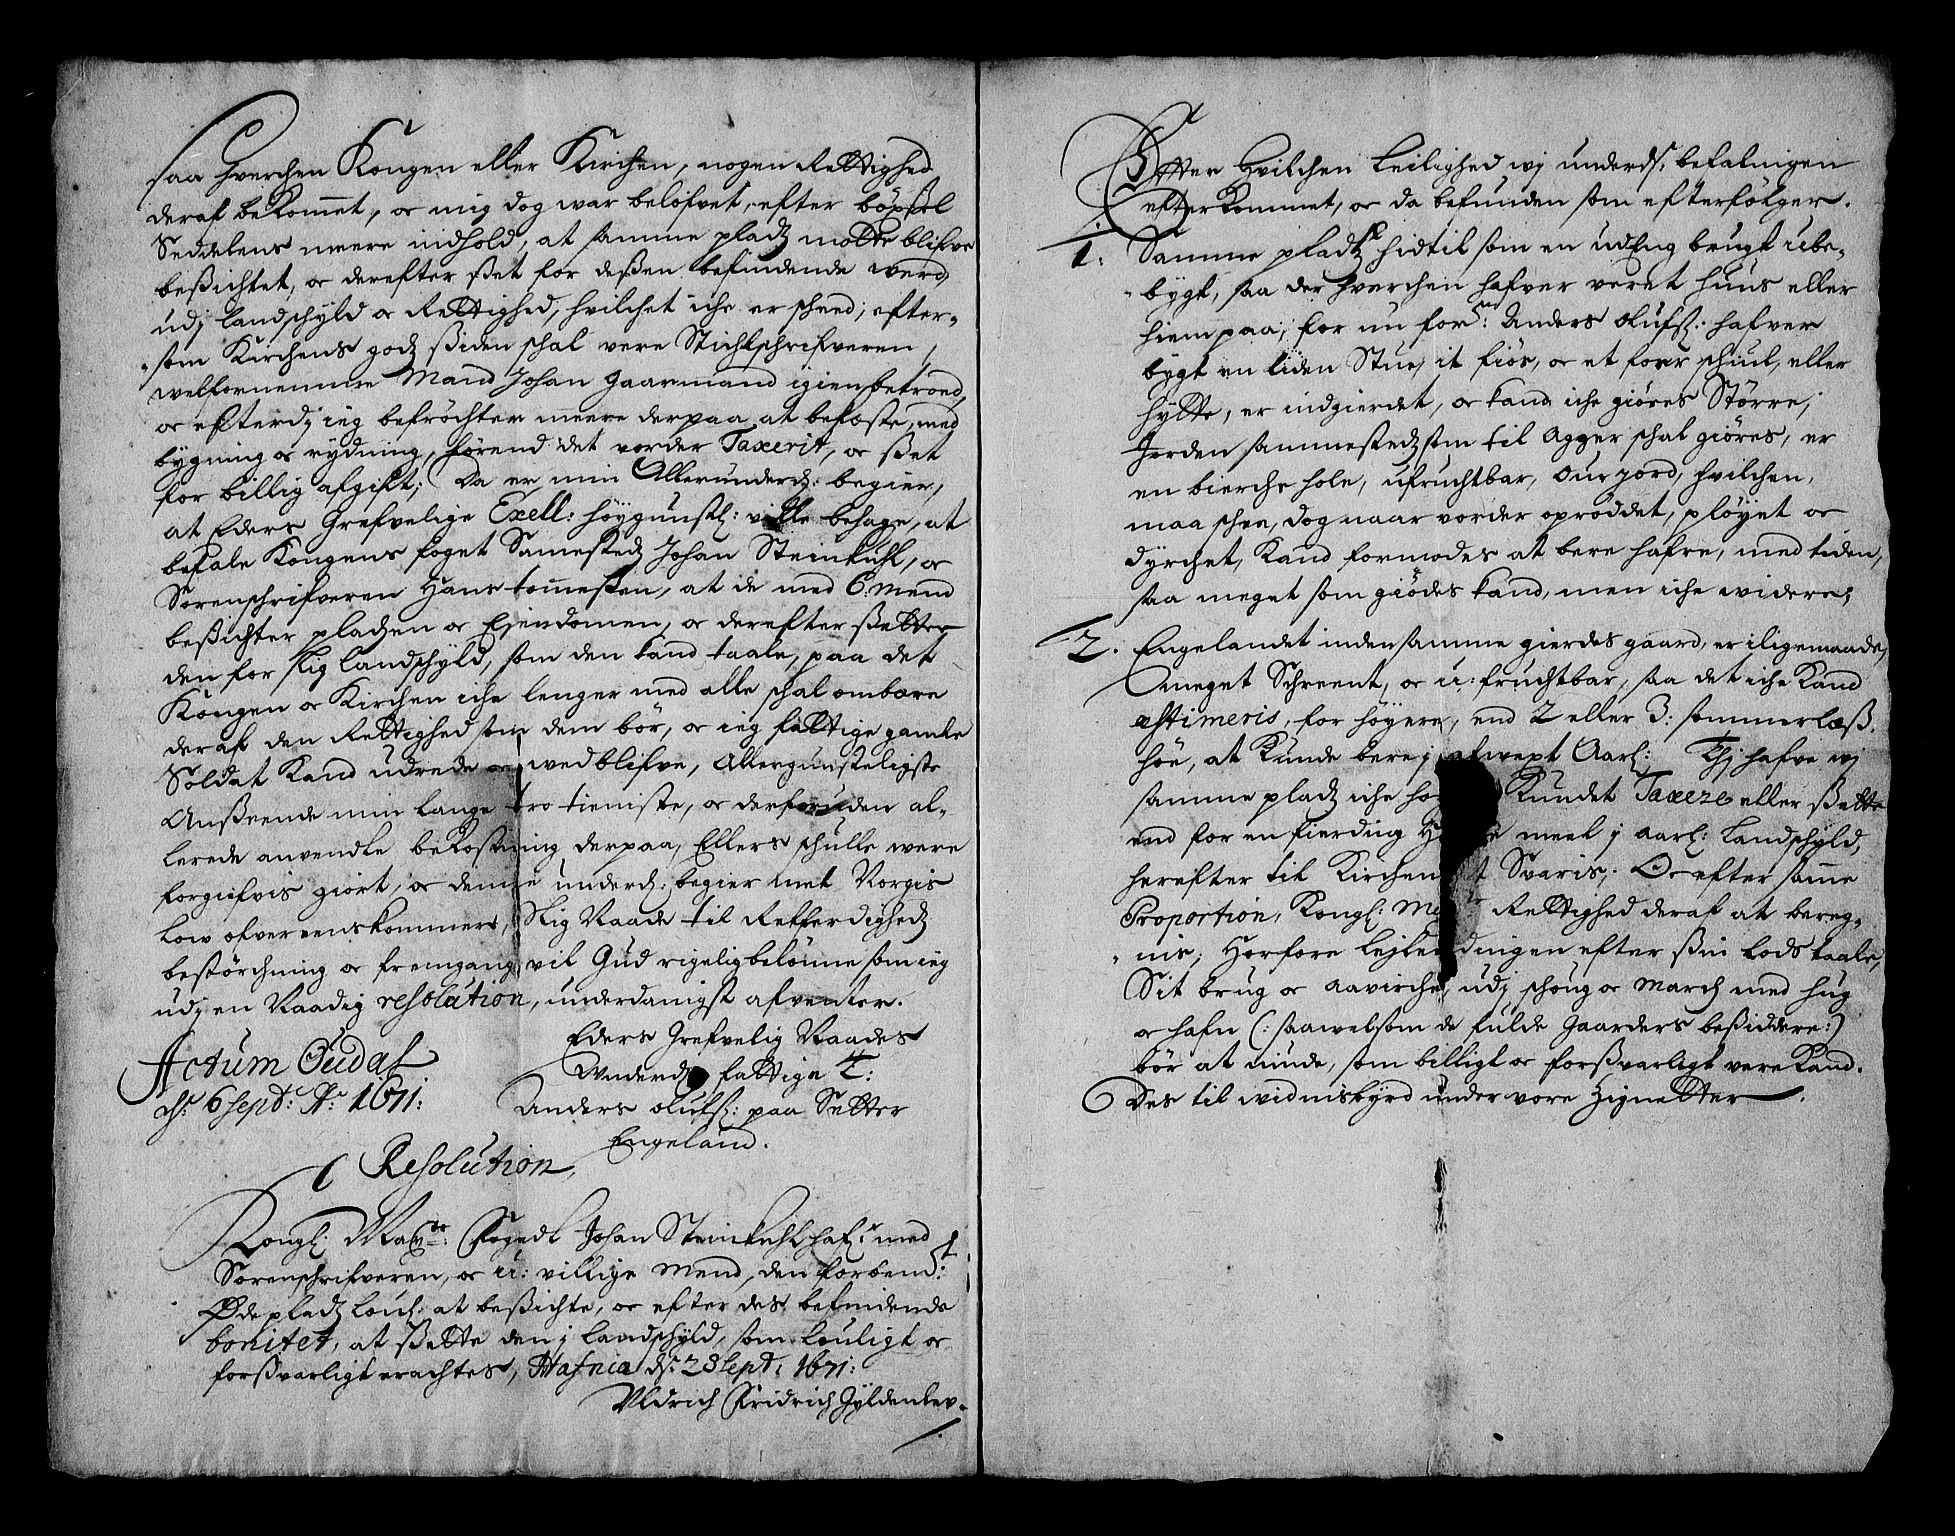 saa hverchen Kongen eller Kirchen, nogen Rettighed
deraf bekommet, oc mig dog war belofvet, efter böxsel
Seddelens meere indhold, at samme pladtz motte blifve
beßichtet, oc derefter ßet for deßen befindende werd,
udj landschyld oc Rettighed, hvilchet iche er scheed; efter-
som Kirchens godtz ßiden schal vere Stichtschrifveren,
welfornemme Mand Johan Gaarmand igien betroed,
oc efterdj ieg befröchter meere derpaa at bekoste, med
bygning oc rydning, förend det vorder Taxerit, oc ßet
for billig afgift; Da er min Allerunderd: begier,
at Eders Grefvelige Excell: höygunstl: ville behage, at
befale Kongens foget Samestedtz Johan Steinkuhl, oc
Sorenschrifveren Hans tommeßen, at de med 6. mend
beßichter pladtzen oc Ejendomen, oc derefter ßetter
den for slig landschyld, som den kand taale, paa det
Kongen oc Kirchen iche lenger med alle schal ombære
deraf den Rettighed som dem bör, oc ieg fattige gamle
Soldat Kand udrede oc wedblifve, Allergunsteligste
Anßeende min lange tro tieniste, oc derforuden al-
lerede anvendte bekostning derpaa, Ellers schulle were
forgiefvis giort, oc denne underd: begier met Norgis
low ofvereenskommer, Slig Naade til Retferdighedtz
bestörchning oc fremgang, vil Gud rigelig belönne som ieg
udj en Naadig resolution, underdanigst afventer.
Eders Grefvelig Naades
Actum Oudal
Underd: fattige T:
ds 6 Sept: Ao 1671:
Anders olufs: paa Setter
Engeland.
Resolution,
Kongl: Mayts: Fogedt Johan Steinkuhl hafr med
Sorenschrifveren, oc u: villige Mend, den forbemt:
Öde pladtz loul: at beßichte, oc efter des befindende
bonitet, at ßette den j landschyld, som louligt oc
forßvarligt erachtes, Hafnia ds 23 Sept: 1671:
Uldrich Fridrich Gyldenlev.
Efter hvilchen Leilighed wj underds: befalningen
efterkommet, oc da befunden som efterfölger.
1: Samme pladtz hidtil som en udEng brugt ube-
bygt, saa der hverchen hafver veret huus eller
hiem paa, for nu forne: Anders olufs: hafver
bygt en liden Stue, it fiös, oc et foer schiul, eller
hytte, er indgierdet, oc kand iche giöres Större,
Jorden sammestedtz som til Agger schal giöres, er
en bierche hole, ufruchtbar, Our jord, hvilchen,
maa schee, dog naar vorder opröddet, pløyet oc
dyrchet, Kand formodes at bere hafre, med tiden,
saa meget som giödes kand, men iche widere;
2. Engelandet inden samme gierdes gaard, er iligemaade
meget Schreent, oc u: fruchtbar, saa det iche Kand
æstimeris, for höyere, end 2 eller 3: sommerlæß
höe, at Kunde bere j afwext Aarl: Thj hafve wj
samme pladtz iche Kundet Taxere eller ßette
end for en fierding meel j aarl: Landschyld,
herefter til Kirchen at Svaris; Oc efter samme
Proportion, Kongl: Mayts Rettighed deraf at bereg-
nis; Horfore Lejlendingen efter ßin Lods taale,
Sit brug oc aavirche, udj schoug oc March med hug
oc hafn (: saawelsom de fulde Gaarders beßiddere:)
bör at niude, som billigt oc forßvarligt vere Kand.
Des til widnisbyrd under vore Zignetter.